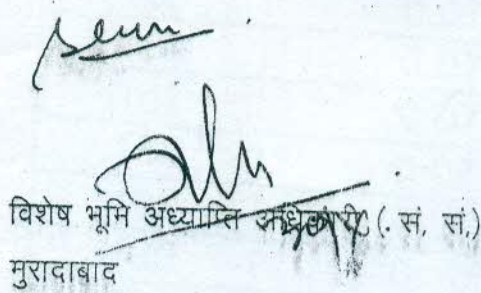 विशेष भूमि अध्याप्ति अधिकारी (. सं, सं,)
मुरादाबाद